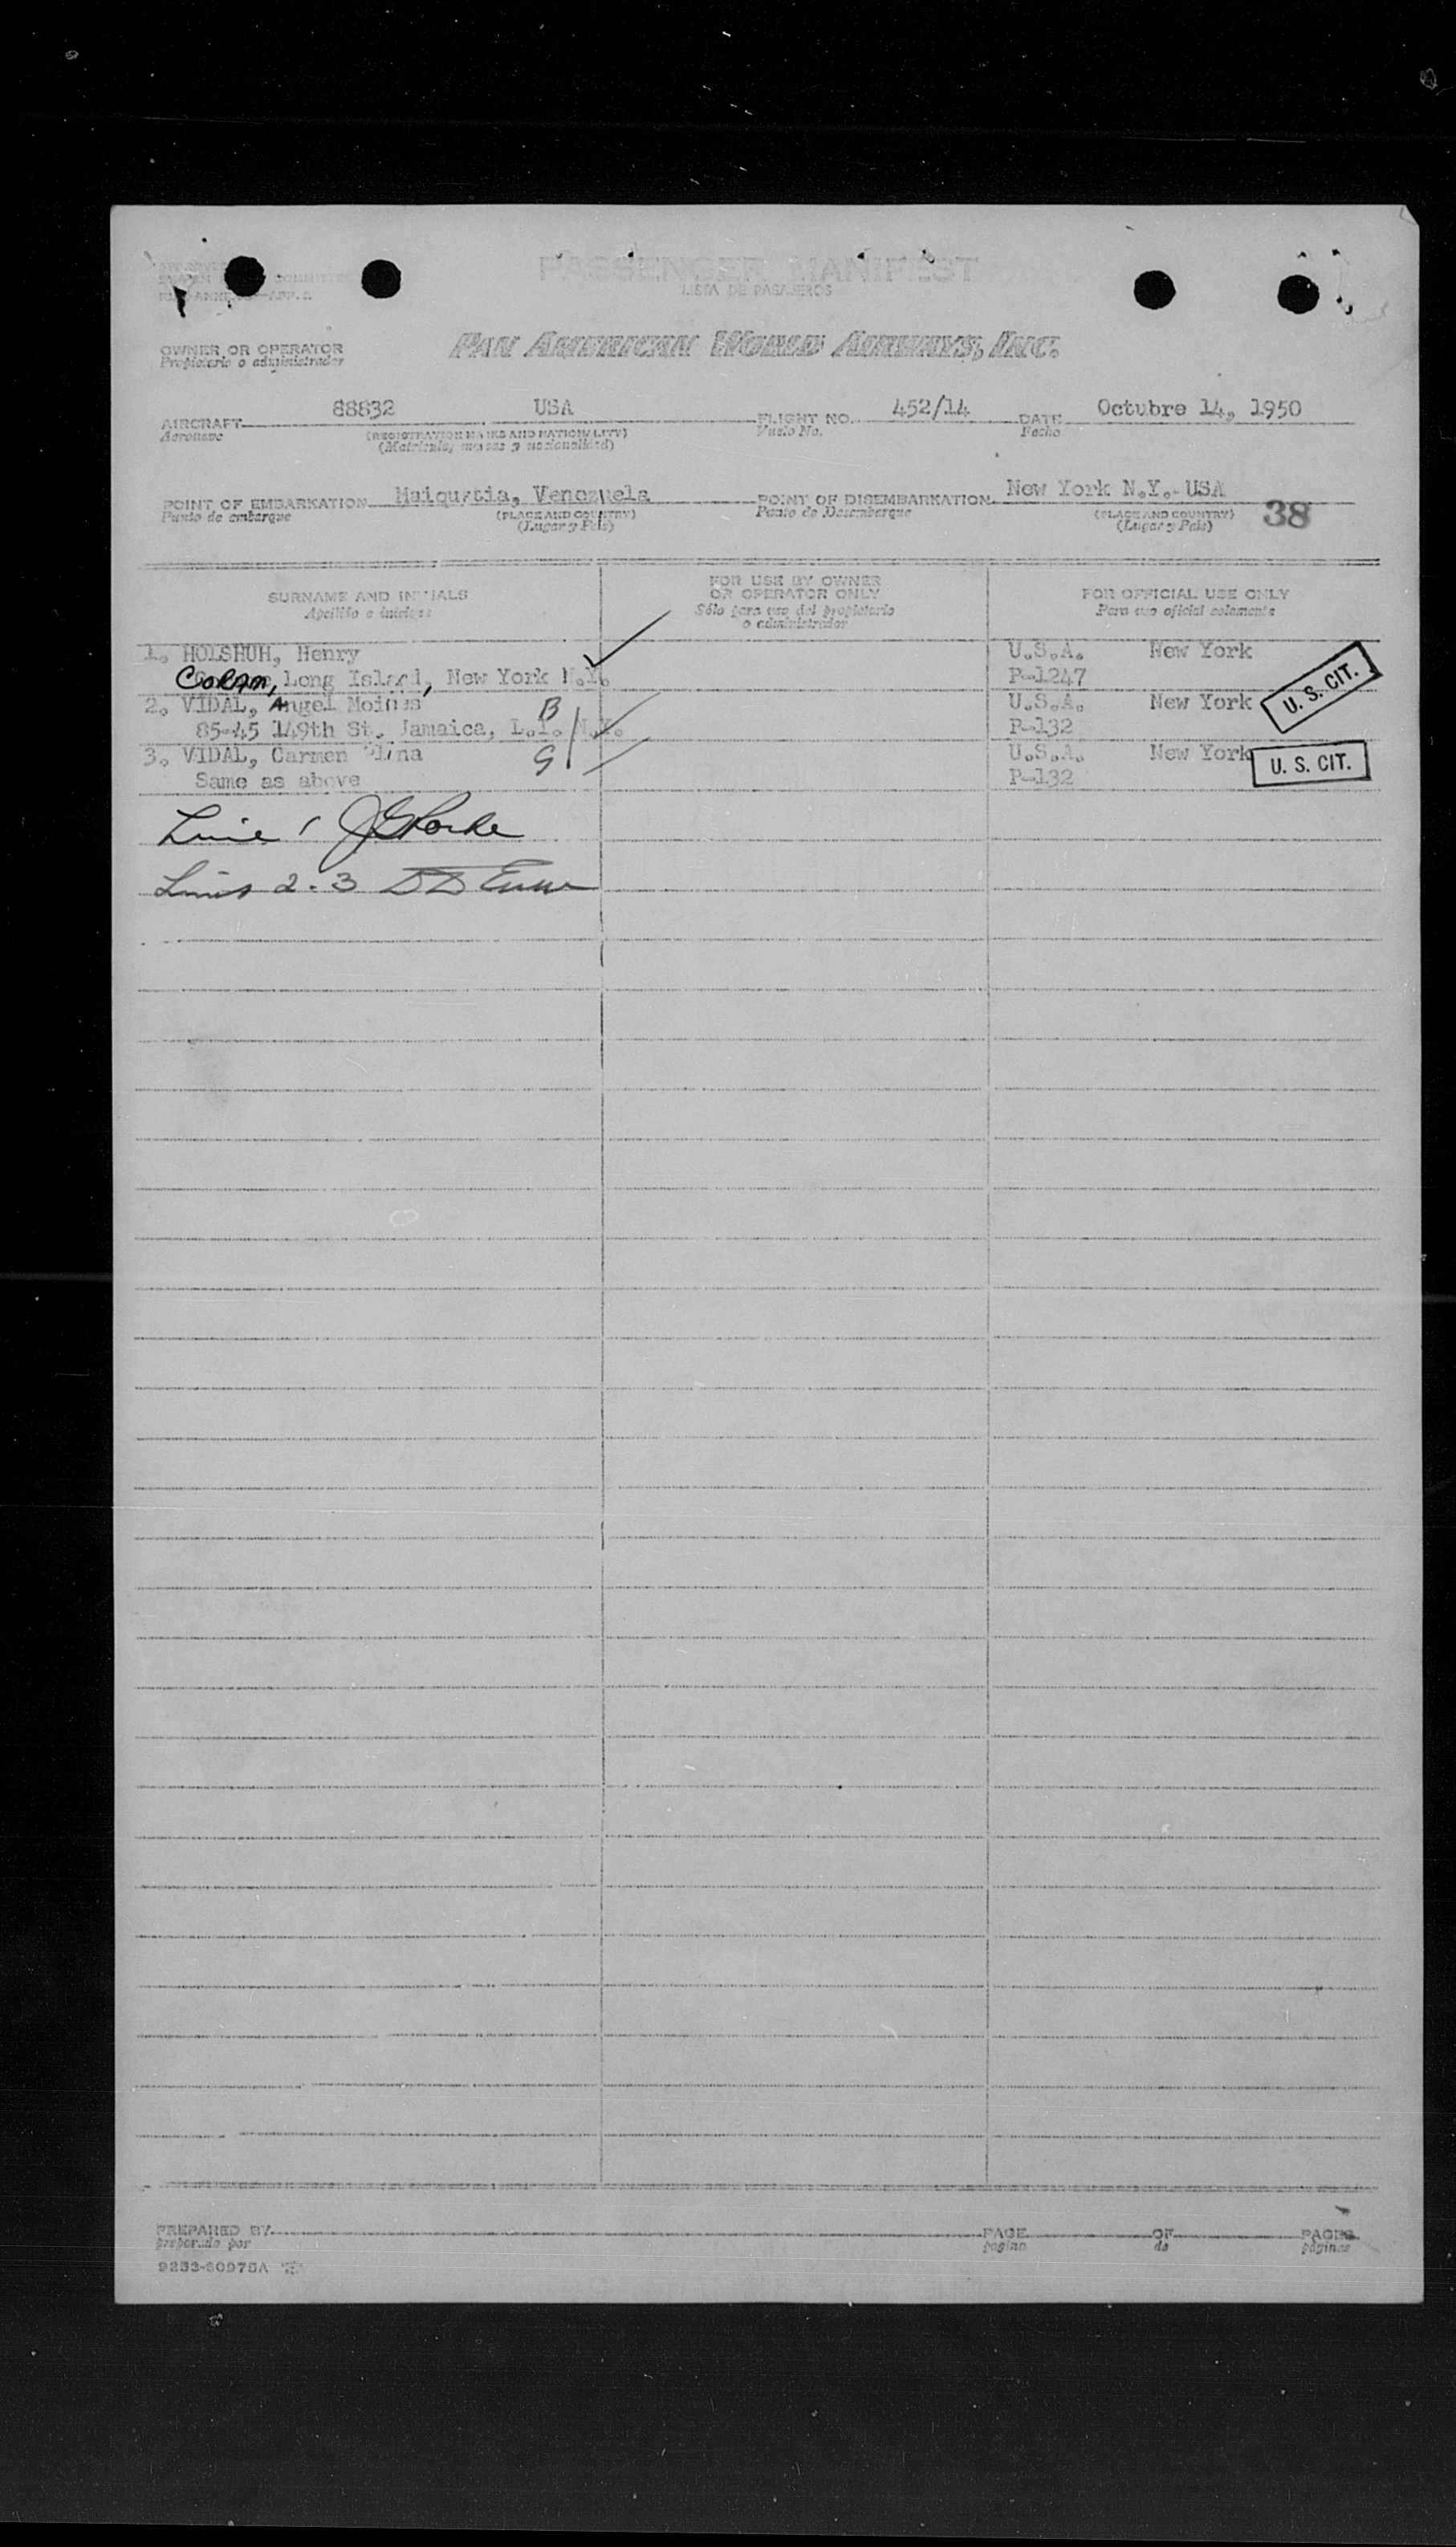 PASSENGER MANIFEST
LISTA DE PASAJEROS
OWNER OR OPERATOR
Propietario o administrador
PAN AMERICAN WORLD AIRWAYS, INC.
AIRCRAFT 88832 USA FLIGHT NO. 452/14 DATE Octubre 14, 1950
Aeronave (REGISTRATION MARKS AND NATIONALITY) Vuelo No. Fecha
(Matricula, marcas y nacionalidad)
POINT OF EMBARKATION Maiquetia, Venezuela POINT OF DISEMBARKATION New York N.Y.-USA
Punto de embarque (PLACE AND COUNTRY) Punto de Desembarque (PLACE AND COUNTRY) 38
(Lugar y Pais) (Lugar y Pais)
SURNAME AND INITIALS FOR USE BY OWNER OR OPERATOR ONLY FOR OFFICIAL USE ONLY
Apellido e iniciales Sólo para uso del propietario o administrador Para uso oficial solamente
1. HOLSHUH, Henry U.S.A. New York
Long Island, New York N.Y. P-1247 U. S. CIT.
2. VIDAL, Angel Moises B U.S.A. New York
85-45 149th St. Jamaica, L.I. N.Y. P-132
3. VIDAL, Carmen G U.S.A. New York U. S. CIT.
Same as above P-132
Line 1
Lines 2-3
PREPARED BY PAGE OF PAGES
preparado por pagina de páginas
9253-60975A